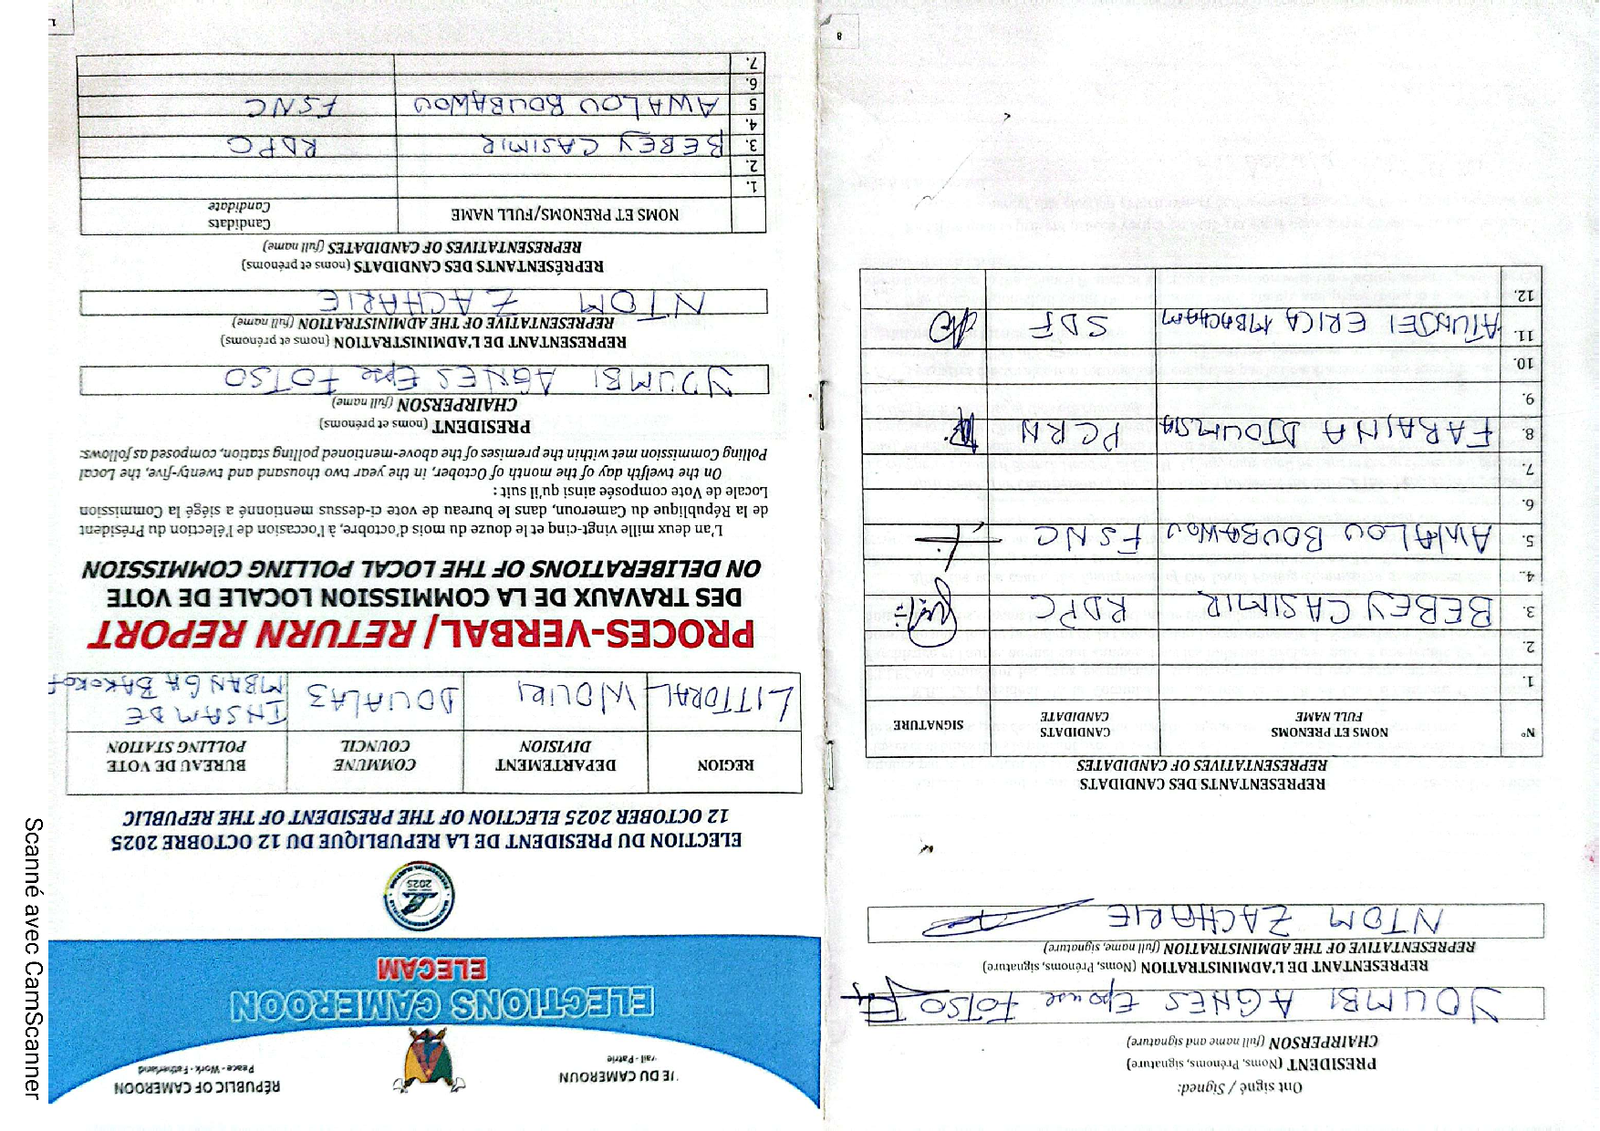 RÉPUBLIC OF CAMEROON
Peace - Work - Fatherland
UE DU CAMEROUN
vail - Patrie
ELECTIONS CAMEROON
ELECAM
2025
ELECTION DU PRESIDENT DE LA REPUBLIQUE DU 12 OCTOBRE 2025
12 OCTOBER 2025 ELECTION OF THE PRESIDENT OF THE REPUBLIC
REGION DEPARTEMENT DIVISION COMMUNE COUNCIL BUREAU DE VOTE POLLING STATION
LITTORAL WOURI DOUALA 3 INSAM DE
MBANGA BAKOKO
PROCES-VERBAL / RETURN REPORT
DES TRAVAUX DE LA COMMISSION LOCALE DE VOTE
ON DELIBERATIONS OF THE LOCAL POLLING COMMISSION
L'an deux mille vingt-cinq et le douze du mois d'octobre, à l'occasion de l'élection du Président
de la République du Cameroun, dans le bureau de vote ci-dessus mentionné a siégé la Commission
Locale de Vote composée ainsi qu'il suit :
On the twelfth day of the month of October, in the year two thousand and twenty-five, the Local
Polling Commission met within the premises of the above-mentioned polling station, composed as follows:
PRESIDENT (noms et prénoms)
CHAIRPERSON (full name)
YOUMBI AGNES Epse FOTSO
REPRESENTANT DE L'ADMINISTRATION (noms et prénoms)
REPRESENTATIVE OF THE ADMINISTRATION (full name)
NTOM ZACHARIE
REPRÉSENTANTS DES CANDIDATS (noms et prénoms)
REPRESENTATIVES OF CANDIDATES (full name)
NOMS ET PRENOMS/FULL NAME Candidats
Candidate
1.
2.
3. BEBEY CASIMIR RDPC
4.
5 AWALOU BOUBAWOU FSNC
6.
7.
Ont signé / Signed:
PRESIDENT (Noms, Prénoms, signature)
CHAIRPERSON (full name and signature)
YOUMBI AGNES Epouse FOTSO
REPRESENTANT DE L'ADMINISTRATION (Noms, Prénoms, signature)
REPRESENTATIVE OF THE ADMINISTRATION (full name, signature)
NTOM ZACHARIE
REPRESENTANTS DES CANDIDATS
REPRESENTATIVES OF CANDIDATES
N° NOMS ET PRENOMS FULL NAME CANDIDATS CANDIDATE SIGNATURE
1.
2.
3. BEBEY CASIMIR RDPC
4.
5. AWALOU BOUBAWOU FSNC
6.
7.
8. FARAINA DJOUMSA PCRN
9.
10.
11. ATUNDEI ERICA MBACHAM SDF
12.
8
Scanné avec CamScanner